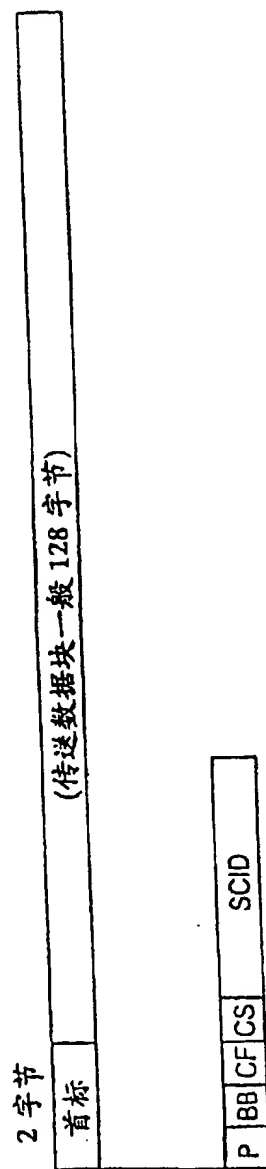 2 字节
首标 (传送数据块一般 128 字节)
P BB CF CS SCID